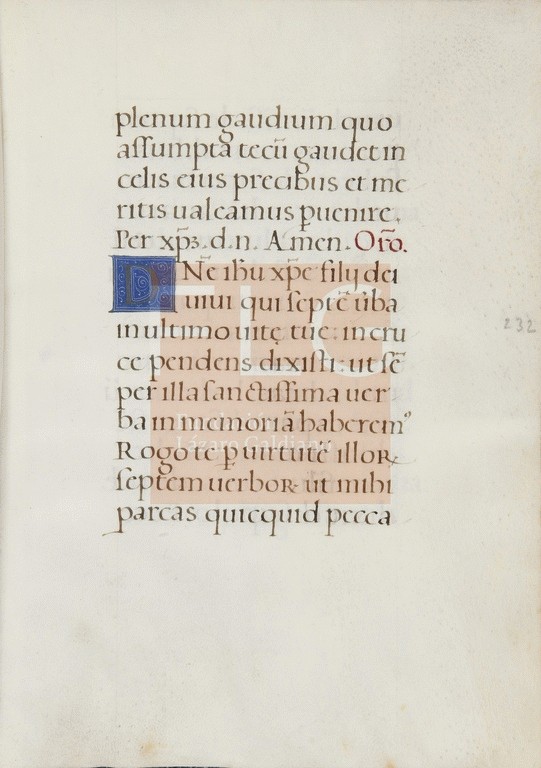 plenum gaudium quo
aſſumpta tecũ gaudet in
celis eius precibus et me
ritis ualeamus ꝑuenire.
Per xp̃ꝫ.d.n. Amen. Or̃o.
DNe ihũ xp̃e filij dei
uiui qui ſeptẽ ũba
in ultimo uitę tue: in cru
ce pendens dixiſti: ut ſẽ
per illa ſanctiſſima uer
ba in memoriã haberemꝰ
Rogo te ꝑ uirtutẽ illoꝝ
ſeptem uerboꝝ ut mihi
parcas quicquid pecca
232
TLG
Fundación
Lázaro Galdiano